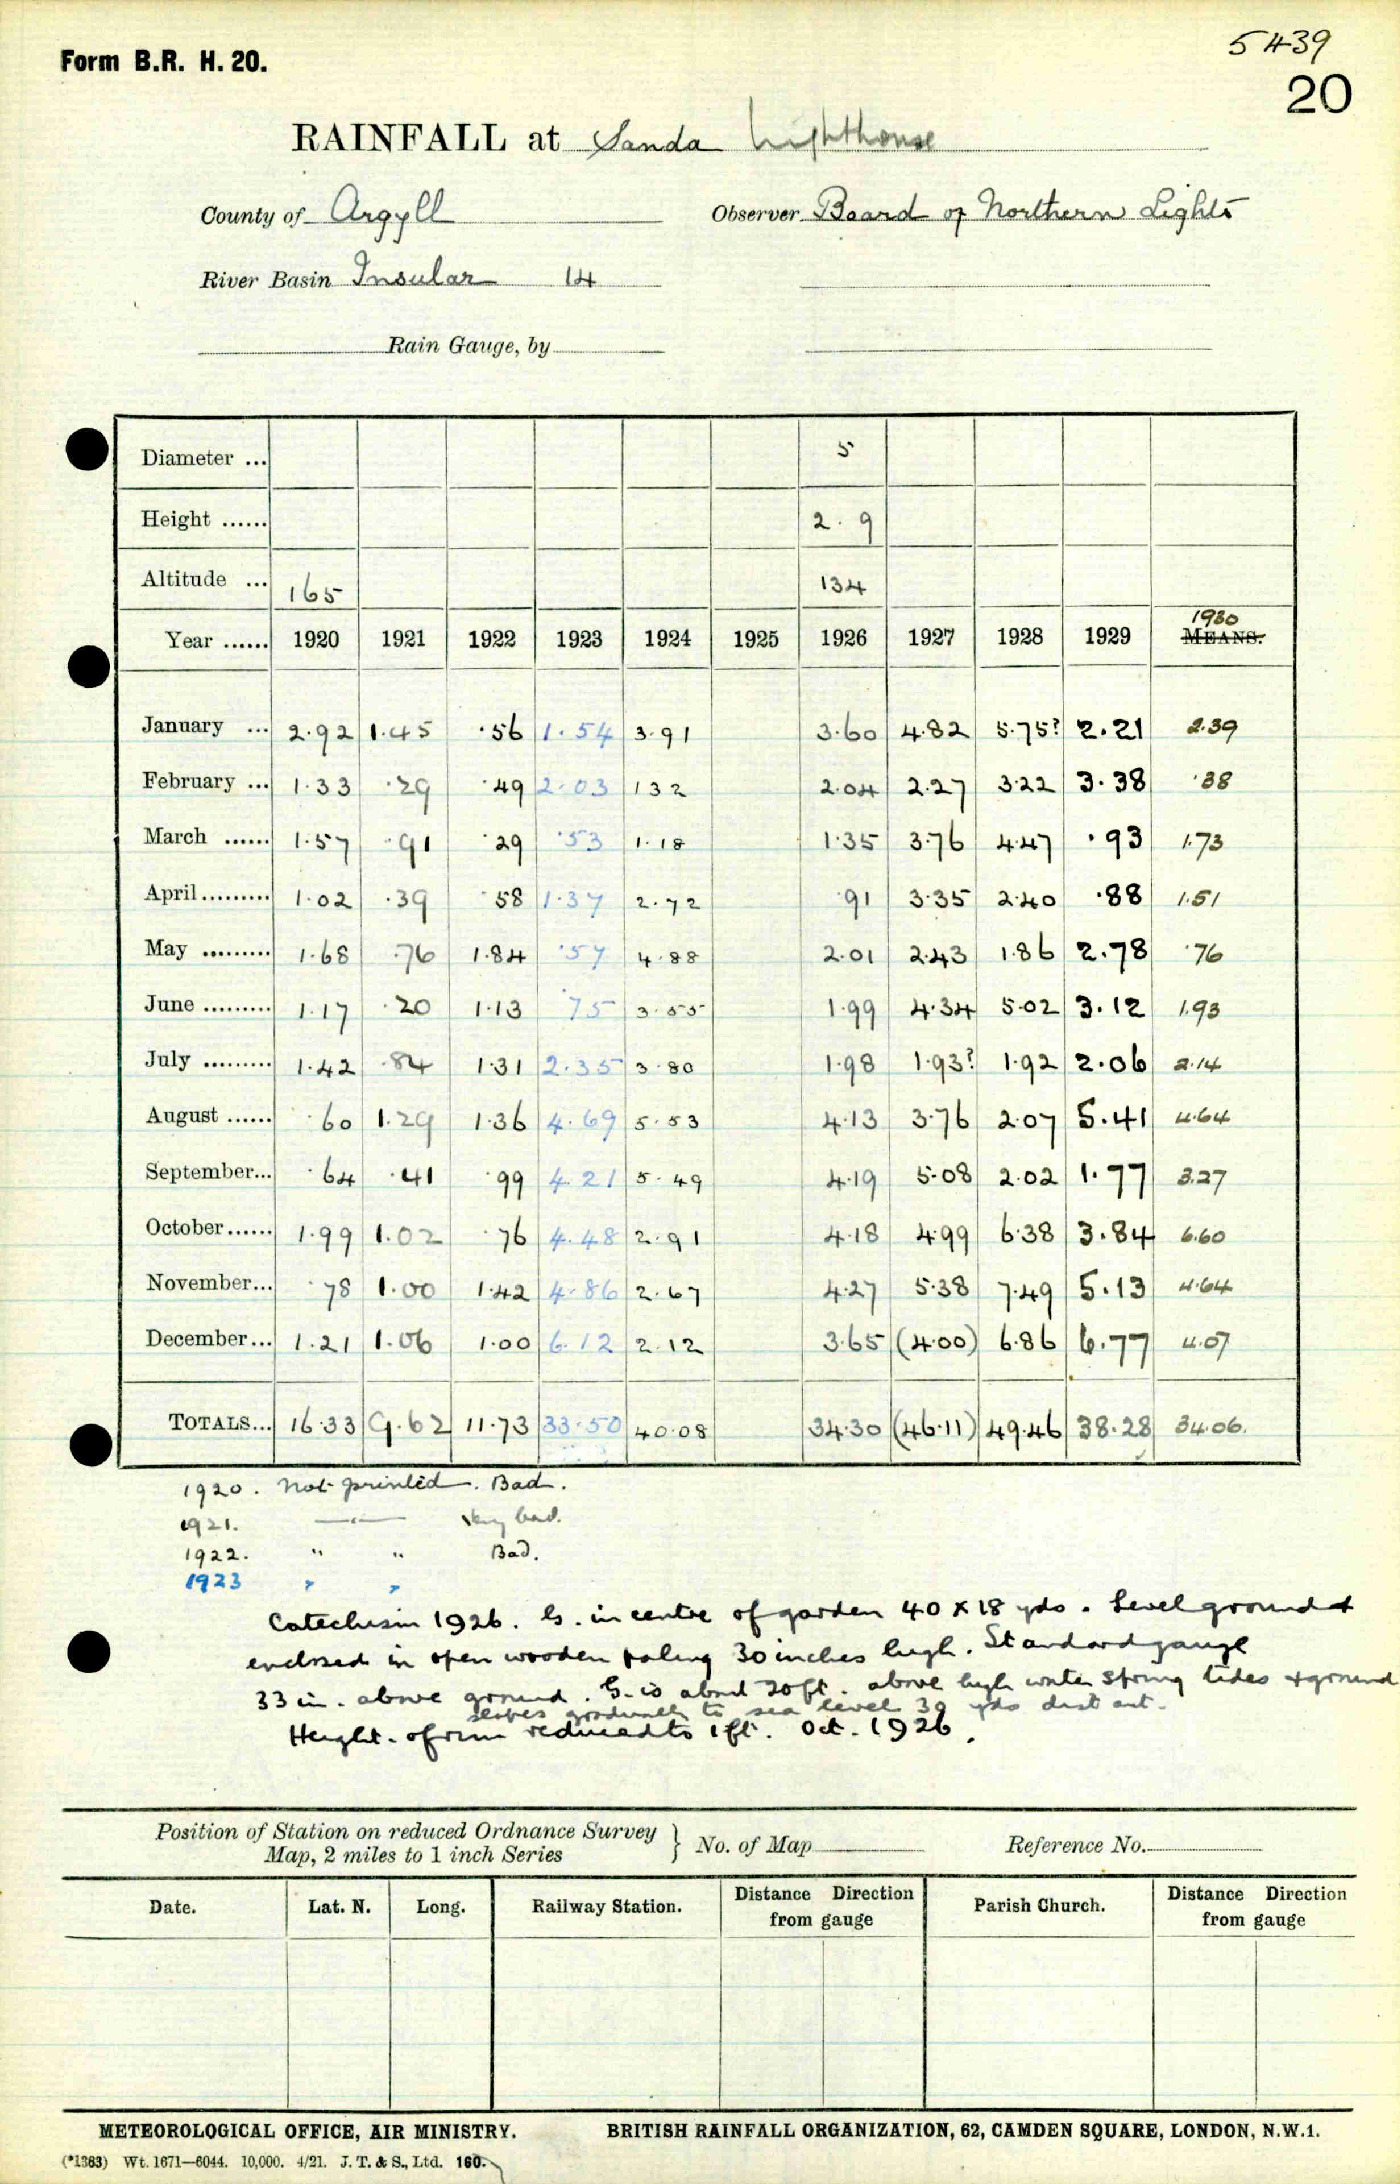 5439
Form B.R. H. 20.
20
RAINFALL at Sanda Lighthouse
County of Argyll Observer Board of Northern Lights
River Basin Insular 14
Rain Gauge, by
Diameter ... 5
Height ...... 2. 9
Altitude ... 165 134
Year ...... 1920 1921 1922 1923 1924 1925 1926 1927 1928 1929 1930 MEANS.
January ... 2.92 1.45 .56 1.54 3.91 3.60 4.82 5.75? 2.21 2.39
February ... 1.33 .29 .49 2.03 1 32 2.04 2.27 3.22 3.38 .38
March ...... 1.57 .91 .29 .53 1.18 1.35 3.76 4.47 .93 1.73
April ......... 1.02 .39 .58 1.37 2.72 .91 3.35 2.40 .88 1.51
May ......... 1.68 .76 1.84 .57 4.88 2.01 2.43 1.86 2.78 .76
June ......... 1.17 .20 1.13 .75 3.55 1.99 4.34 5.02 3.12 1.93
July ......... 1.42 .84 1.31 2.35 3.80 1.98 1.93? 1.92 2.06 2.14
August ...... .60 1.29 1.36 4.69 5.53 4.13 3.76 2.07 5.41 4.64
September... .64 .41 .99 4.21 5.49 4.19 5.08 2.02 1.77 3.27
October...... 1.99 1.02 .76 4.48 2.91 4.18 4.99 6.38 3.84 6.60
November... .78 1.00 1.42 4.86 2.67 4.27 5.38 7.49 5.13 4.64
December... 1.21 1.06 1.00 6.12 2.12 3.65 (4.00) 6.86 6.77 4.07
TOTALS... 16.33 9.62 11.73 33.50 40.08 34.30 (46.11) 49.46 38.28 34.06.
1920. Not printed. Bad.
1921. —"— Very bad.
1922. " " Bad.
1923 " "
Catechism 1926. G. in centre of garden 40 x 18 yds. Level ground &
enclosed in open wooden paling 30 inches high. Standard gauge
33 in. above ground. G. is about 20ft. above high water spring tides & ground
slopes gradually to sea level 30 yds distant.
Height of rim reduced to 1 ft. Oct. 1926.
Position of Station on reduced Ordnance Survey Map, 2 miles to 1 inch Series } No. of Map Reference No.
Date. Lat. N. Long. Railway Station. Distance Direction from gauge Parish Church. Distance Direction from gauge
METEOROLOGICAL OFFICE, AIR MINISTRY. BRITISH RAINFALL ORGANIZATION, 62, CAMDEN SQUARE, LONDON, N.W.1.
(*1383) Wt. 1671—6044. 10,000. 4/21. J. T. & S., Ltd. 160.